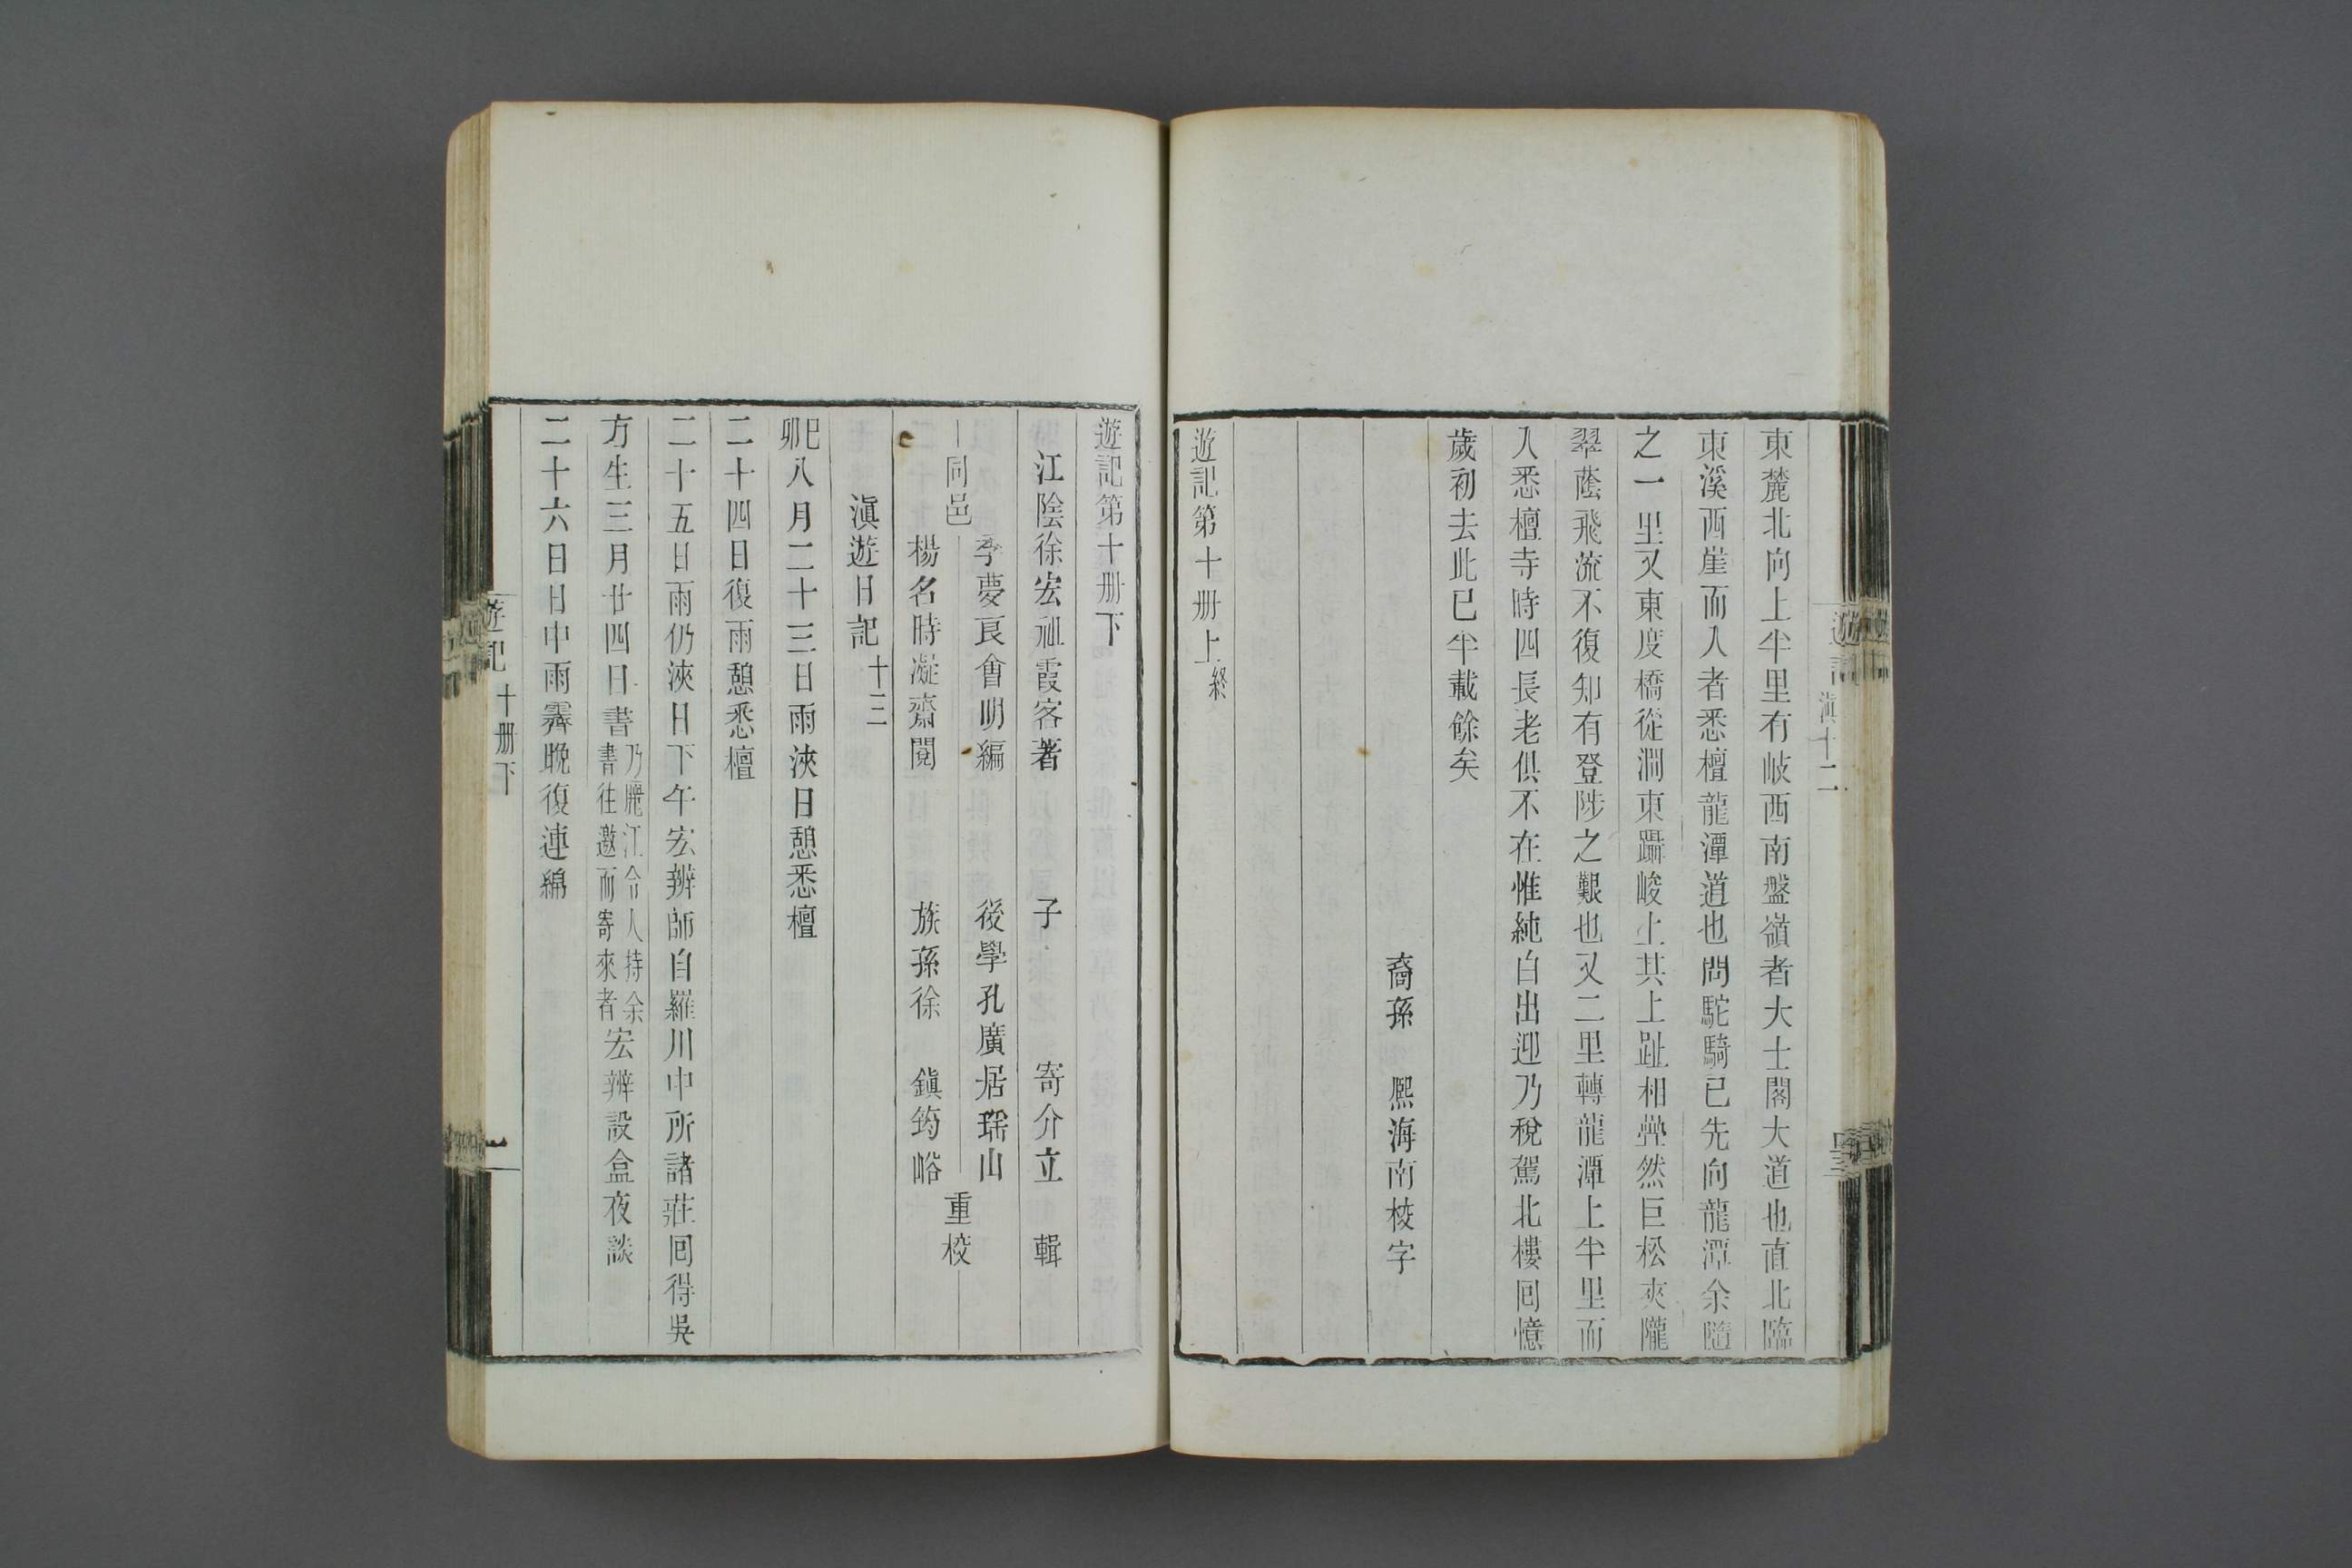 遊記 滇十二
東麓北向上半里有岐西南盤嶺者大士閣大道也直北臨
東溪西崖而入者悉檀龍潭道也問駝騎已先向龍潭余隨
之一里又東度橋從澗東躡峻上其上趾相疊然巨松夾隴
翠蔭飛流不復知有登陟之艱也又二里轉龍潭上半里而
入悉檀寺時四長老俱不在惟純白出迎乃稅駕北樓回憶
歲初去此已半載餘矣
裔孫 熙海南校字
遊記第十册上終
遊記第十册下
江陰徐宏祖霞客著 子 寄介立 輯
同邑 李夢良會明編 後學孔廣居瑤山 重校
楊名時凝齋閱 族孫徐 鎮筠峪
滇遊日記十三
己卯八月二十三日雨浹日憩悉檀
二十四日復雨憩悉檀
二十五日雨仍浹日下午宏辨師自羅川中所諸莊回得吳
方生三月廿四日書乃麗江令人持余書往邀而寄來者宏辨設盒夜談
二十六日日中雨霽晚復連綿
遊記 十册下 一